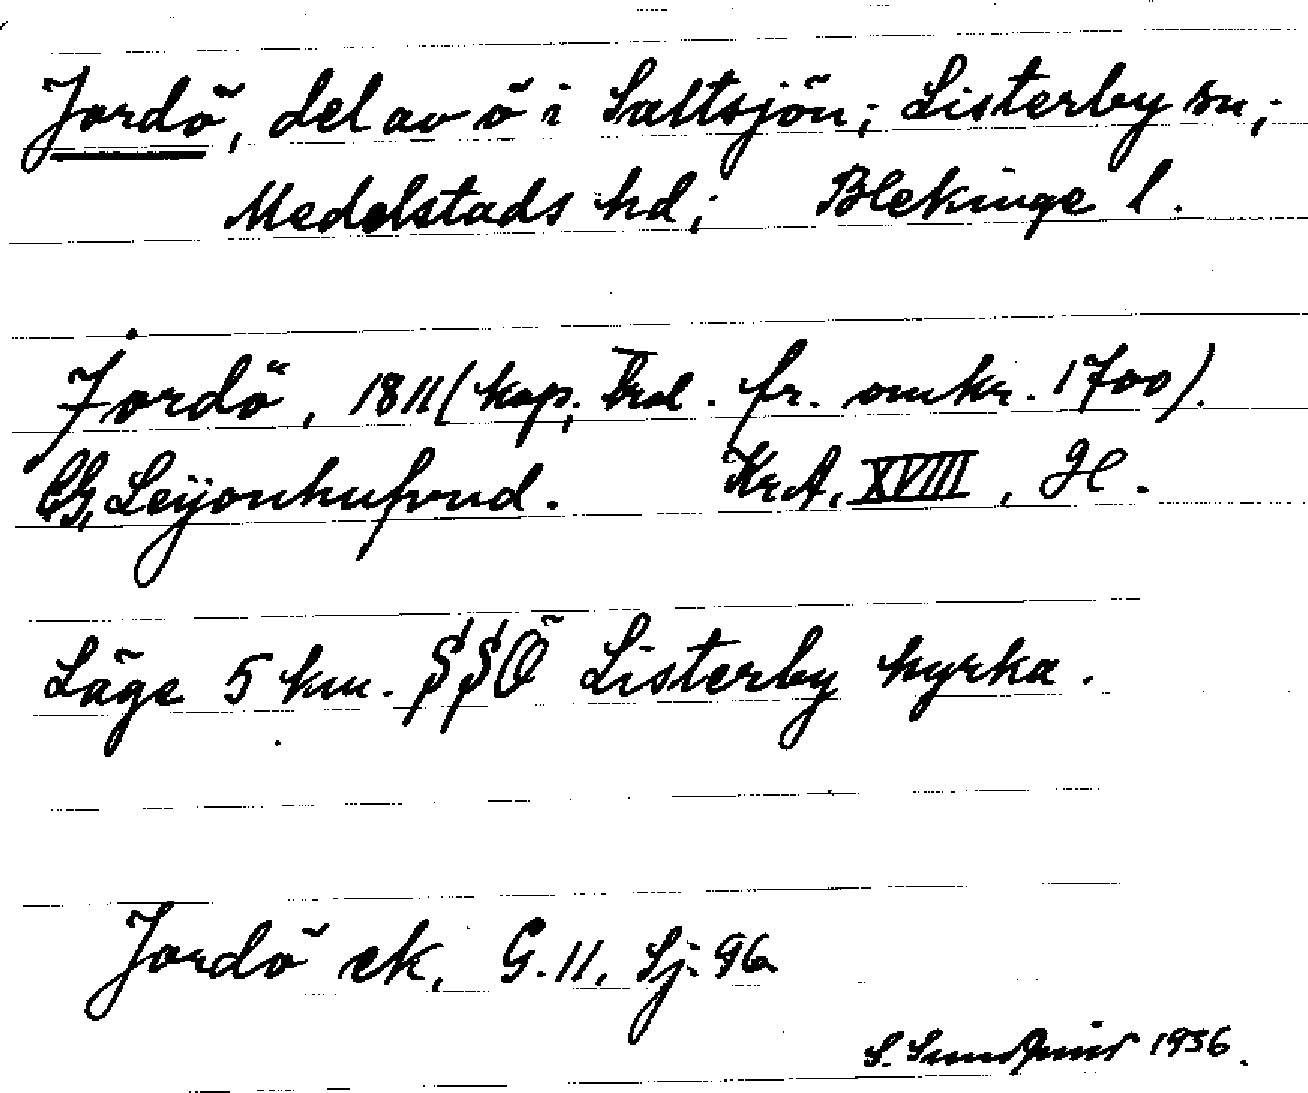 Jordö, del av ö i Saltsjön; Listerby sn;
Medelstads hd; Blekinge l.
Jordö, 1811 (kop. fr. omkr. 1700).
CG. Leijonhufvud. Kr.A. XVIII, H.
Läge 5 km. SSÖ Listerby kyrka.
Jordö ek, G. 11, Sj. 96
S. 1936.